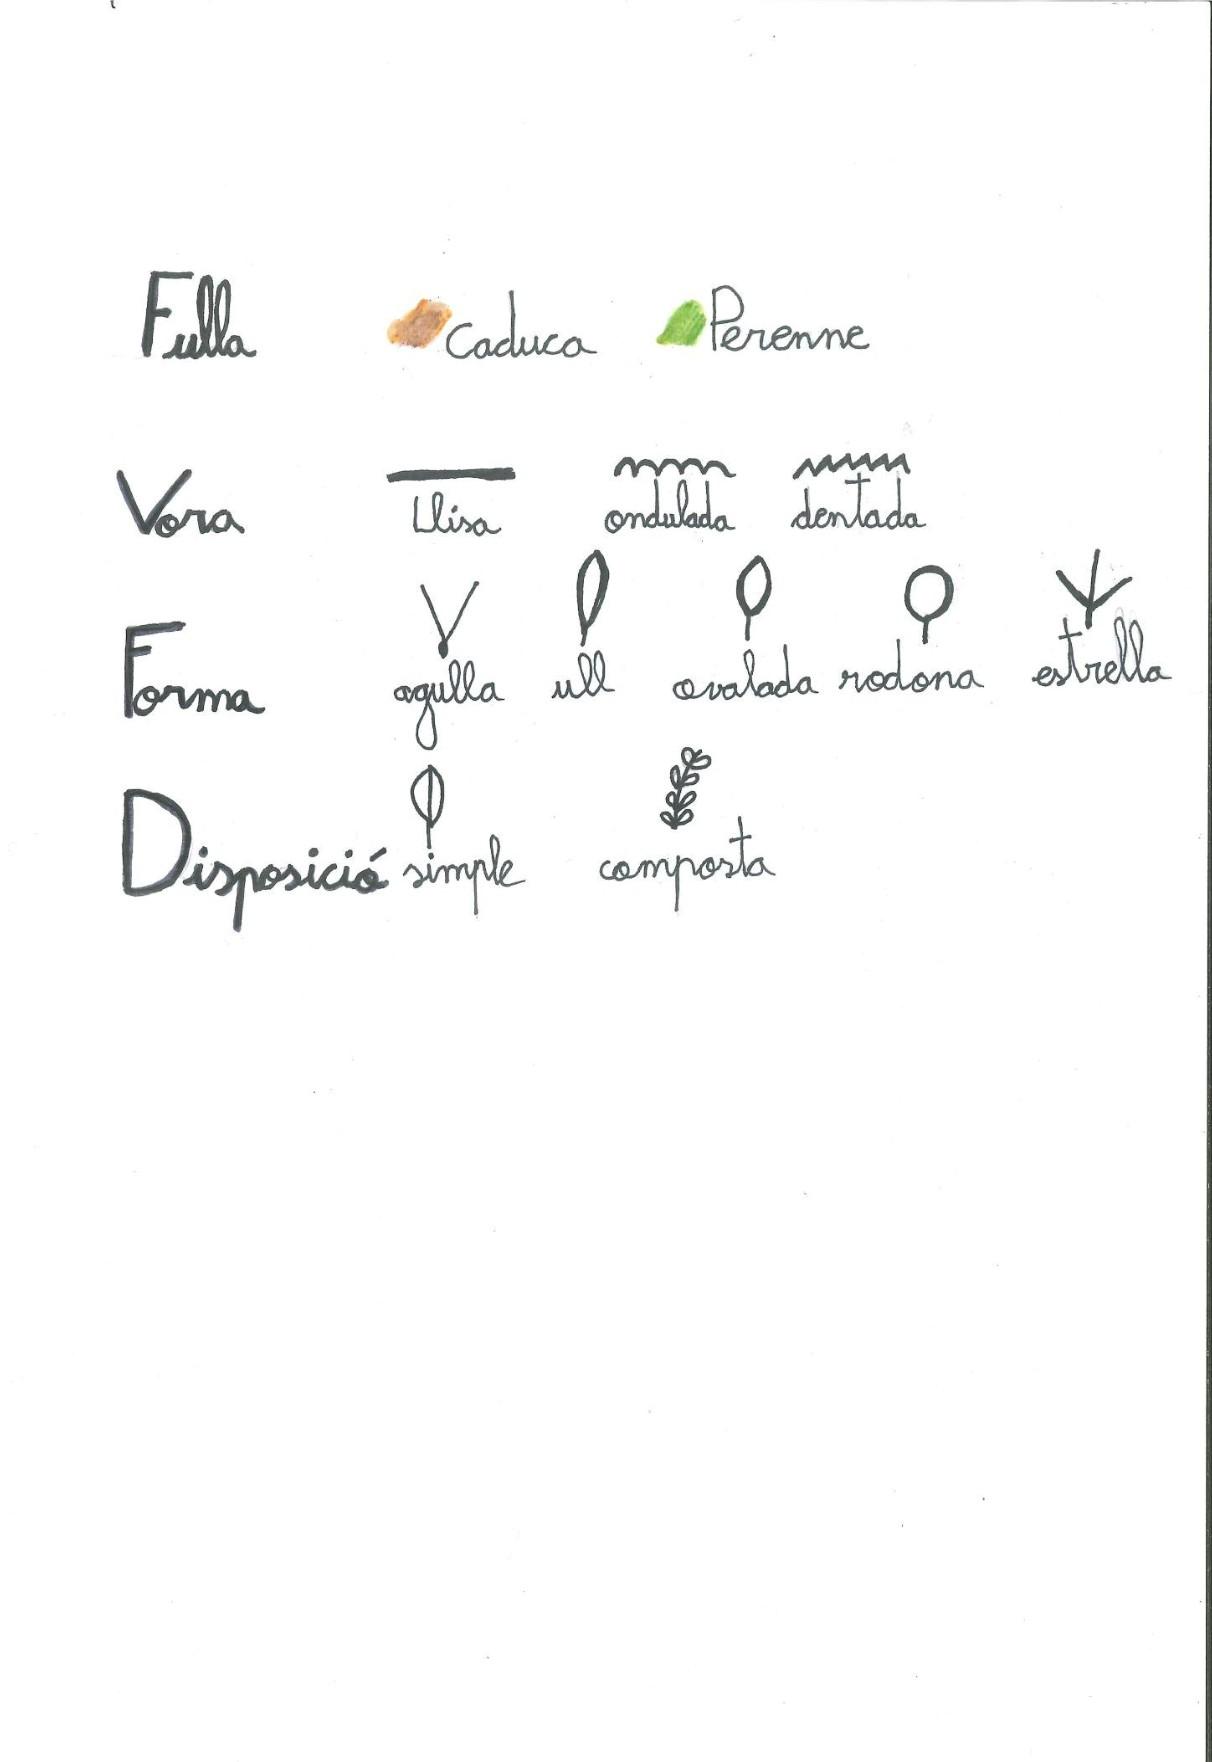 Fulla Caduca Perenne
Vora Llisa ondulada dentada
Forma agulla ull ovalada rodona estrella
Disposició simple composta